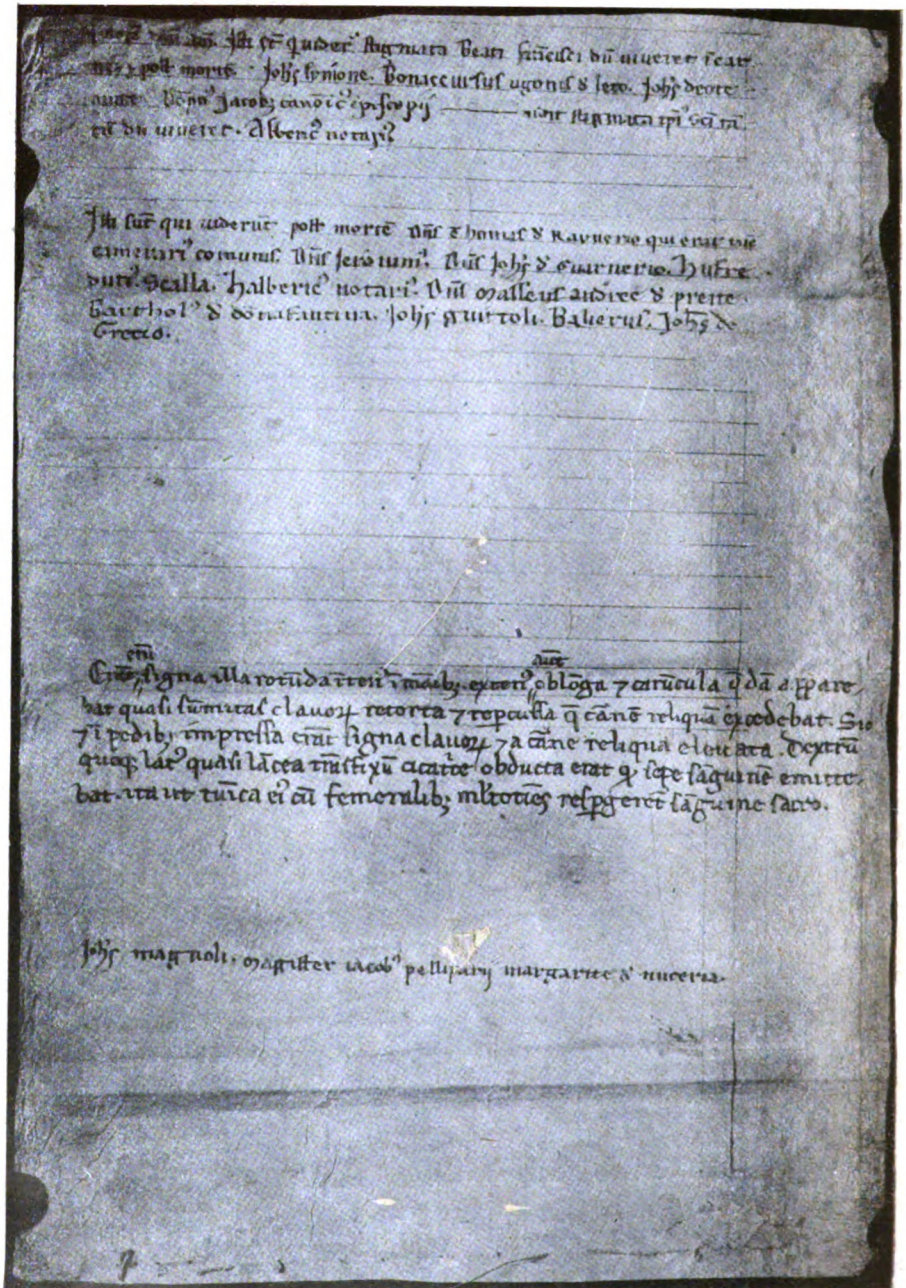 Isti st̄ q̇ uider̄t stigmata beati francisci dū uiueret
post mortē. Johs̄ symone. Bonaccursus ugonis ⁊ Johs̄
Jacobꝫ canoīc̄ ep̄iscopii stigmata
dū uiueret. Albericꝰ notariꝰ
Isti sūt qui uiderūt post mortē Dn̄s Thomas d̄ Raynerio qui erat
comunis. Dn̄s Jeronimꝰ. Dn̄s Johs̄ d̄ Guarnerio. Hufre
ducꝰ. Scalla. Halbericꝰ notariꝰ. Dn̄s Masseus andree d̄
Bartholꝰ d̄ Johs̄ guittoli. Balierus. Johs̄ de
Grecio.
eni aute
signa illa rotūda ītiꝰ ī maībꝫ extiꝰ oblōga ⁊ carūcula q̄dā appare
bat quasi sūmitas clauoꝝ retorta ⁊ repcussa q̄ carnē reliquā excedebat. Sic
⁊ ī pedibꝫ īmpressa erāt signa clauoꝝ ⁊ a carne reliqua eleuata. Dextrū
quoqꝫ latꝰ quasi lācea trāsfixū cicatrice obducta erat q̄ sepe sāguinē emitte
bat. ita ut tunica eiꝰ cū femoralibꝫ mltotiēs respgeret̄ sāguine sacro.
Johs̄ magnoli. Magister iacobꝰ pelliparij margarite d̄ nuceria.